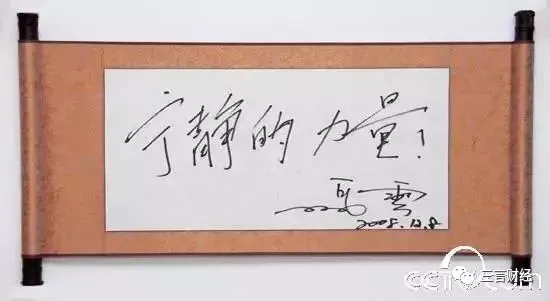 宁静的力量！
马雲
2008.12.8
CCTV.com
三言财经